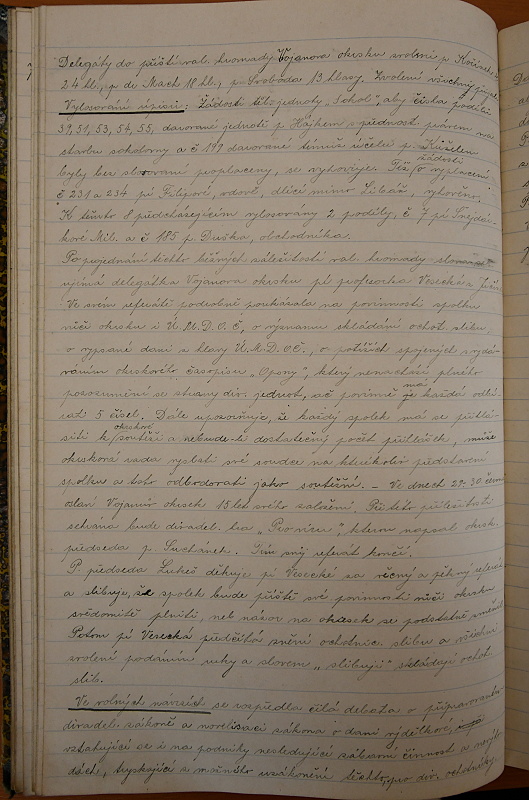 Delegáty do příští val. hromady Vojanova okrsku zvoleni p. Kořínek
24 hl., p. dr. Mach 18 hl., p. Svoboda 13 hlasy. Zvolení všechny
Vylosování úpisů: Žádosti těl. jednoty „Sokol", aby čísla podílů
39, 51, 53, 54, 55, darované jednotě p. Hájkem s předností právem na
stavbu sokolovny a č 199 darované témuž účelu p. Kuželem
byly bez slosování proplaceny, se vyhovuje. Též žádosti o vyplacení
č 231 a 234 pí Filipové, vdově, dlící mimo Libáň, vyhověno.
K těmto 8 předcházejícím vylosovány 2 podíly, č 7 pí Šnejdár-
kové Mil. a č 185 p. Duška, obchodníka.
Po projednání těchto běžných záležitostí val. hromady
ujímá delegátka Vojanova okrsku pí profesorka Vesecká z Jičína
Ve svém referátě podrobně poukázala na povinnosti spolku
vůči okrsku i Ú.M.D.O.Č., o významu skládání ochot. slibu,
o vypsané dani z hlavy Ú.M.D.O.Č., o potížích spojených s vydá-
váním okrskového časopisu „Opony", který nenachází plného
porozumění se strany div. jednot, ač povinně má je každá odbí-
rat 5 čísel. Dále upozorňuje, že každý spolek má se přihlá-
siti k okrskové soutěži a nebude-li dostatečný počet přihlášek, může
okrsková rada vyslati své soudce na kterékoliv představení
spolku a toto odbodovati jako soutěžní. – Ve dnech 29-30 června
oslaví Vojanův okrsek 15 let svého založení. Při této příležitosti
sehrána bude divadel. hra „Provisu", kterou napsal okrsk.
předseda p. Suchánek. Tím svůj referát končí.
P. předseda Lukeš děkuje pí Vesecké za věcný a pěkný referát
a slibuje, že spolek bude příště své povinnosti vůči okrsku
svědomitě plniti, neb názor na okrsek se podstatně změnil.
Potom pí Vesecká předčítá znění ochotnic. slibu a všichni
zvolení podáním ruky a slovem „slibuji" skládají ochot.
slib.
Ve volných návrzích se rozpředla čilá debata o připravovaném
divadel. zákoně a novelisaci zákona o dani výdělkové,
vztahující se i na podniky nesledující zábavní činnost a
dách, tryskající z možného uzákonění těchto, pro div. ochotníky